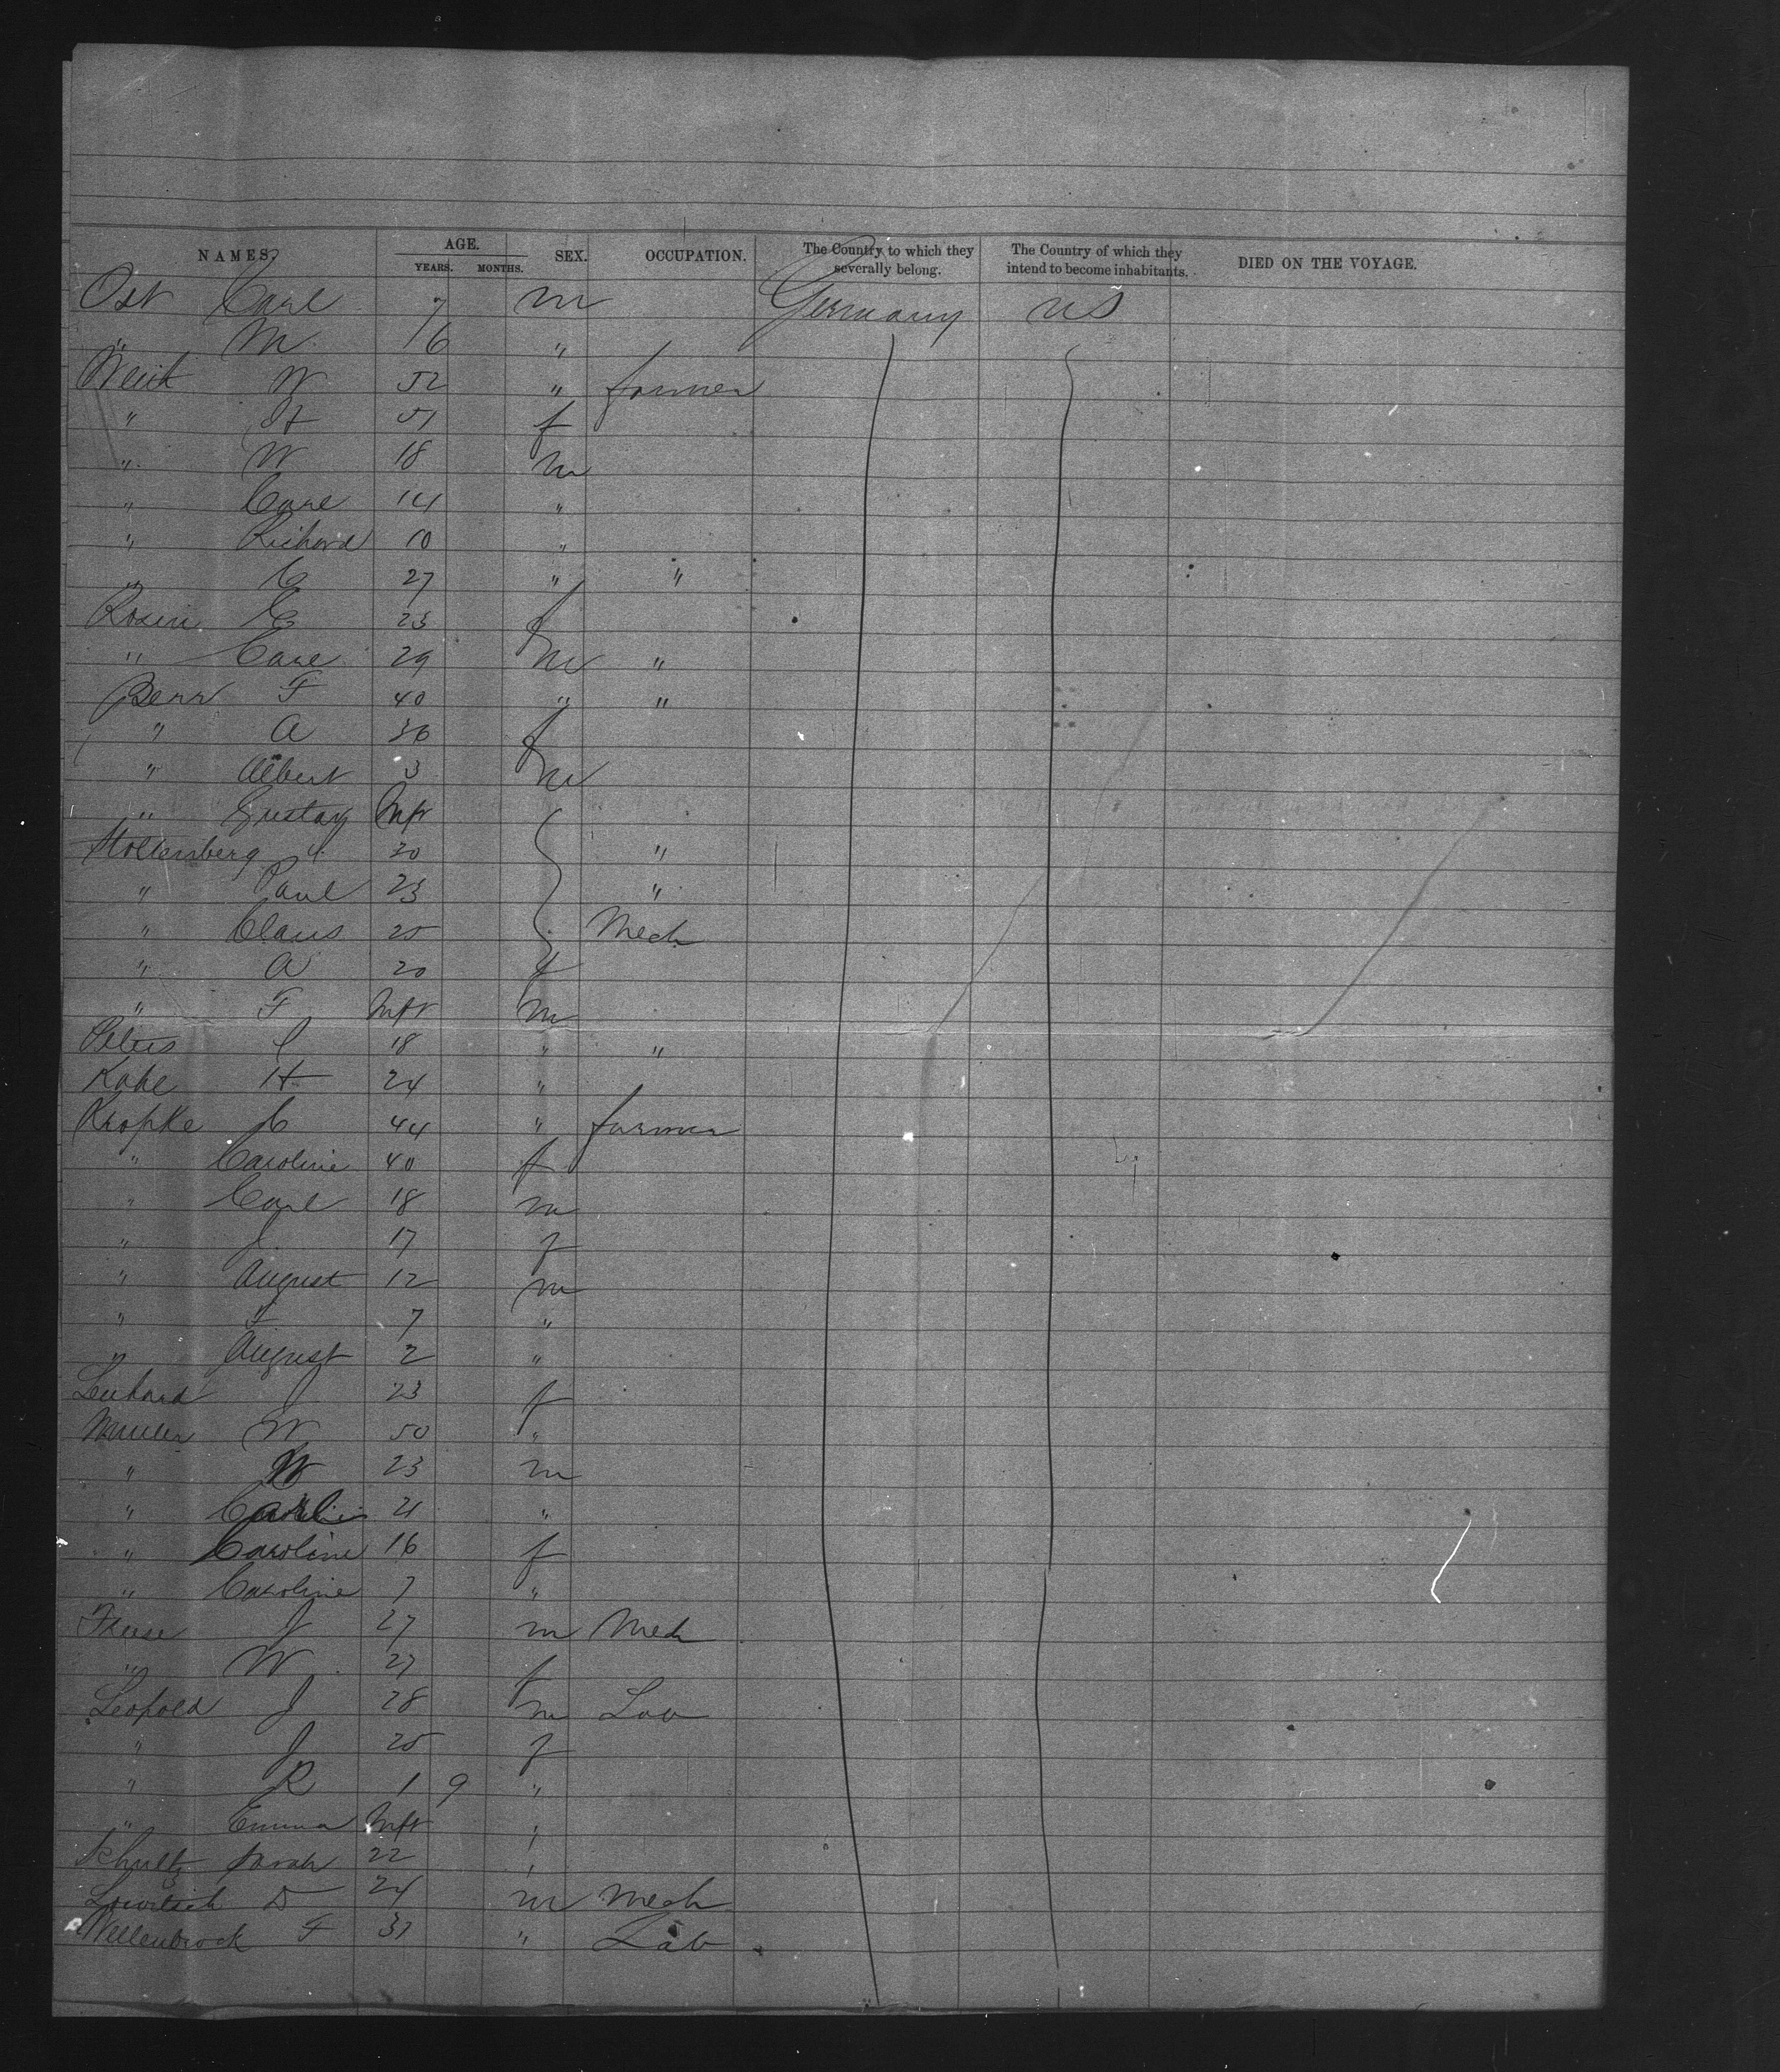 NAMES. AGE. SEX. OCCUPATION. The Country to which they severally belong. The Country of which they intend to become inhabitants. DIED ON THE VOYAGE.
YEARS. MONTHS.
Ost Carl 7 m Germany US
" M 16 "
W 52 " farmer
" 51 f
" W 18 m
" Carl 14 "
" Richard 10 "
" C 27 " "
Rosin E 23 f
" Carl 29 m "
F 40 " "
" A 36 f
" Albert 3 m
" Gustav Inft
Holtenberg J. 20 "
" Paul 23 "
" Claus 25 Mech
" A 20 f
" F Inft m
Peters 18 " "
Kahe H 24 "
Kropke C 44 " farmer
" Caroline 40 f
" Carl 18 m
" J 17 f
" August 12 m
" F 7 "
" August 2 "
Lenhard J 23 f
Muller W 50 "
" W 23 m
" 21 "
" Caroline 16 f
" Caroline 7 "
J 27 m Mech
" W 27 f
Leopold J 28 m Lab
" J 25 f
" R 1 9 "
" Emma Inft "
Schultz Sarah 22 "
D 24 m Mech
Wellenbrock F 31 " Lab